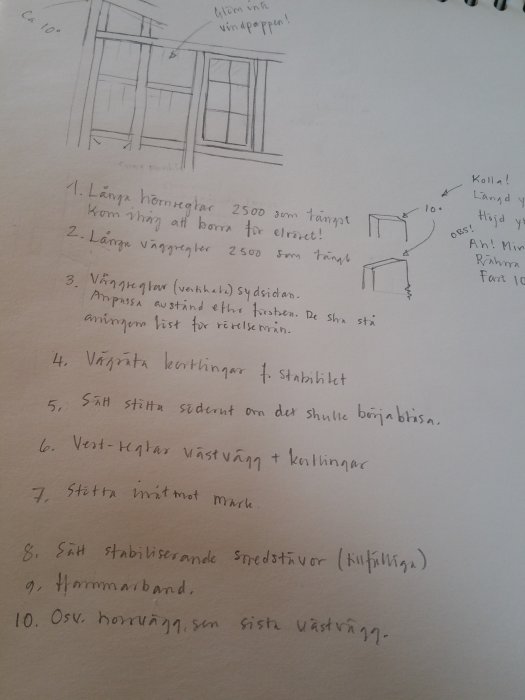 Ca 10°
Glöm inte
vindpappen!
1. Långa hörnreglar 2500 som längst
Kom ihåg att borra för elröret!
2. Långa väggreglar 2500 som längst
3. Väggreglar (vertikala) sydsidan.
Anpassa avstånd efter fönstren. De ska stå
aningen löst för rörelsemån.
4. Vågräta kortlingar f. stabilitet
5. Sätt stötta söderut om det skulle börja blåsa.
6. Vert-reglar västvägg + kortlingar
7. Stötta inåt mot mark.
8. Sätt stabiliserande snedstävor (tillfälliga)
9. Hammarband.
10. Osv. norrvägg, sen sista västvägg.
Kolla!
Längd y
10°
Höjd y
OBS!
Ah! Min
Räkna
Fast 10